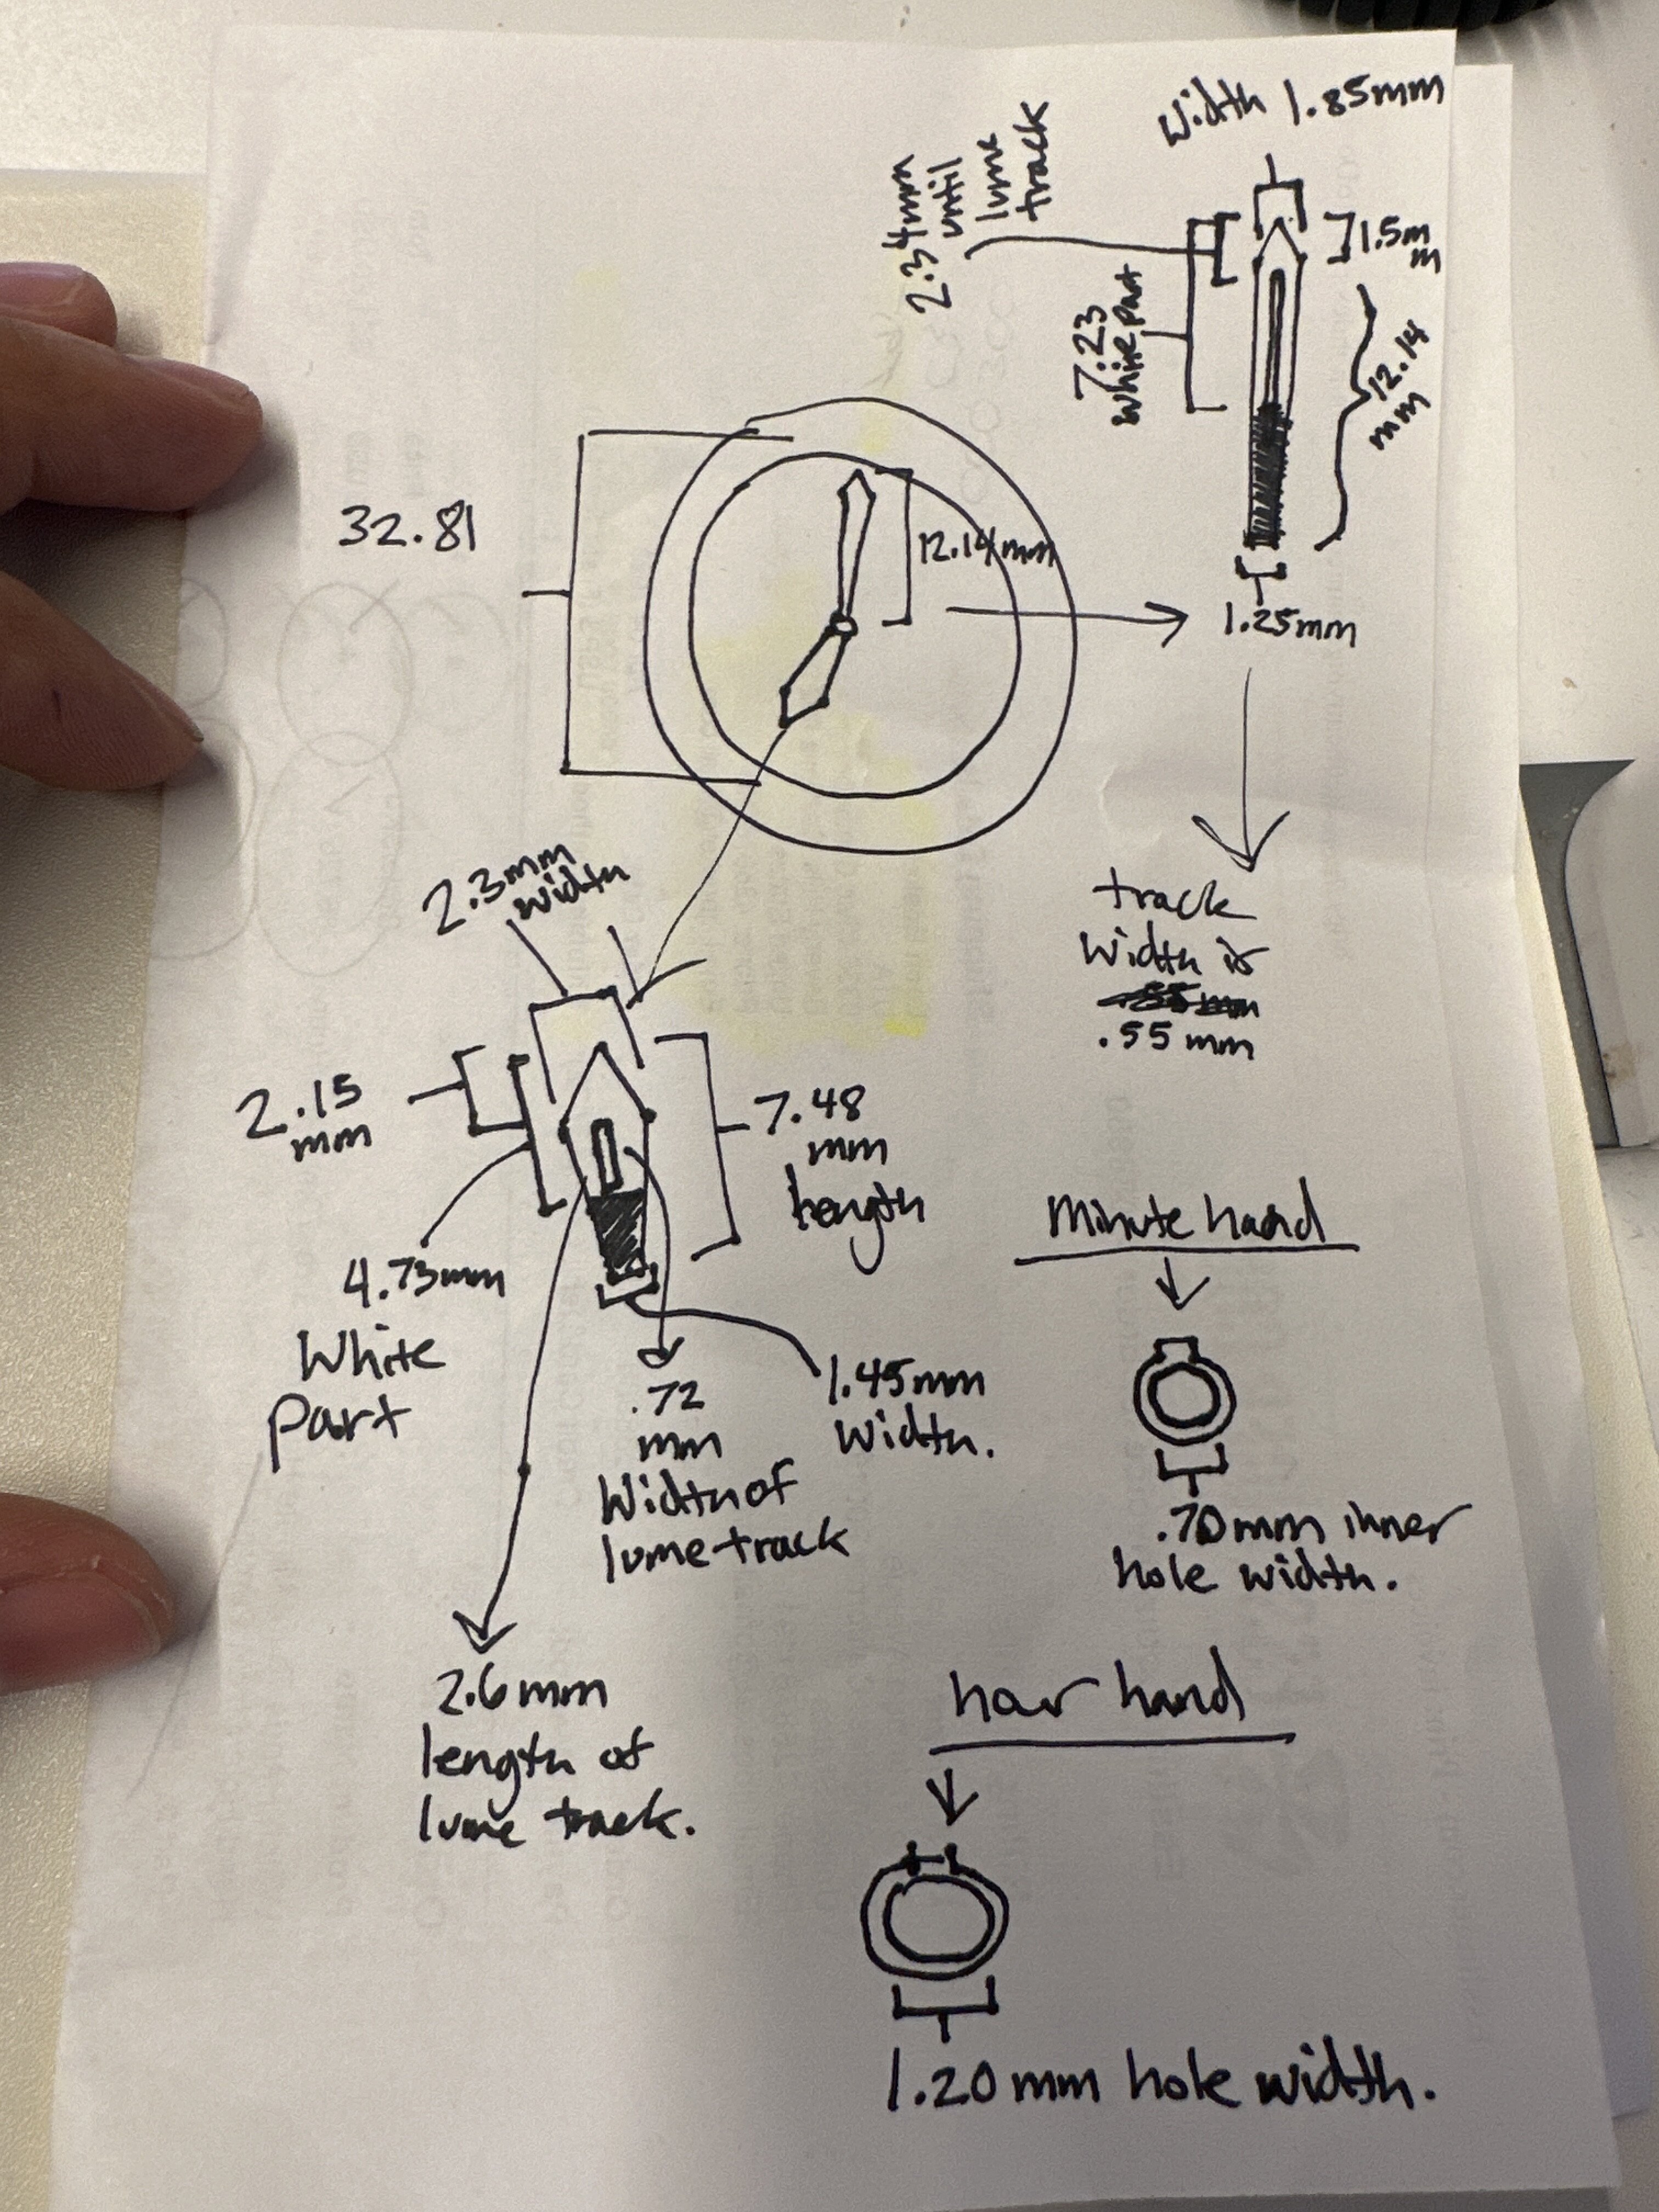 Width 1.85mm
2.34mm
until
lume
track
1.5m
m
7.23
white part
12.14
mm
32.81
12.14mm
1.25mm
track
width is
.55 mm
2.3mm
width
2.15
mm
7.48
mm
length
4.73mm
White
part
.72
mm
Width of
lume track
1.45mm
width.
2.6mm
length of
lume track.
Minute hand
.70mm inner
hole width.
hour hand
1.20mm hole width.